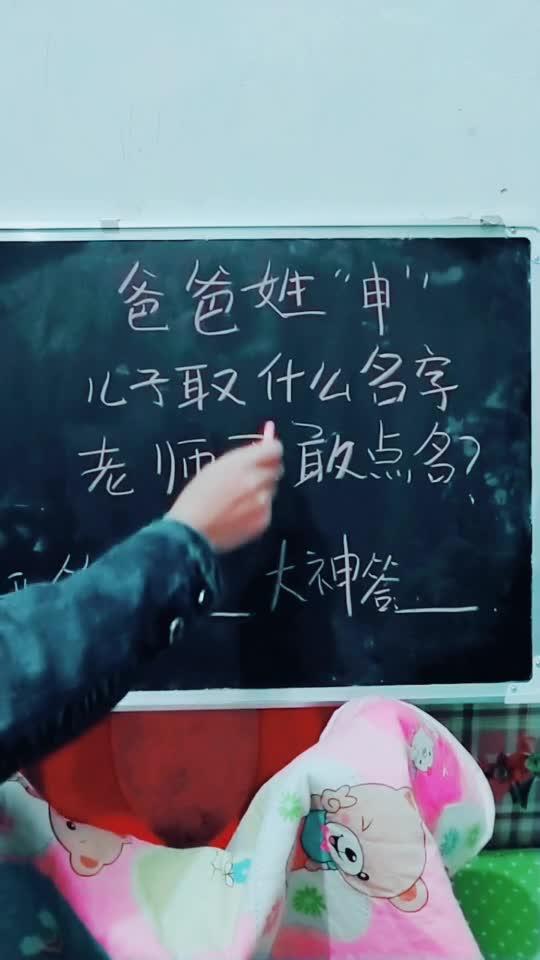 爸爸姓“申”
儿子取什么名字
老师 敢点名?
答 __ 大神答__